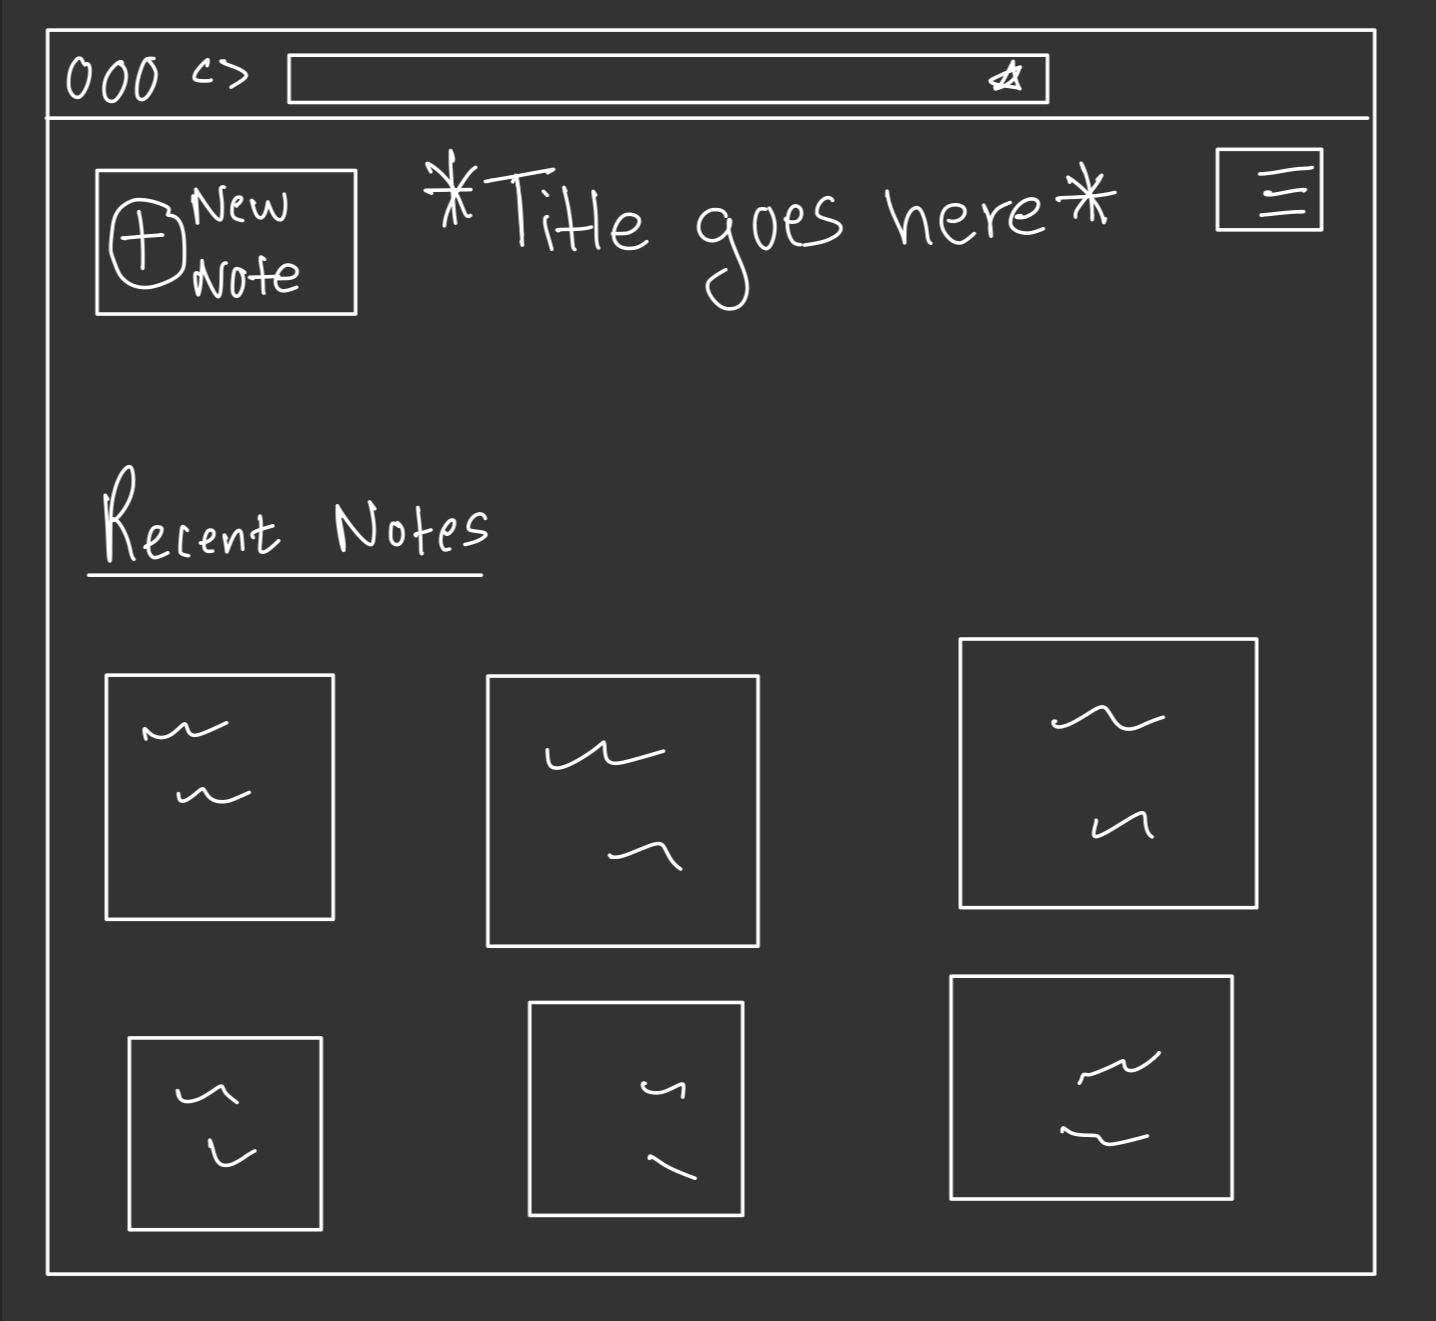 New
Note
*Title goes here*
Recent Notes